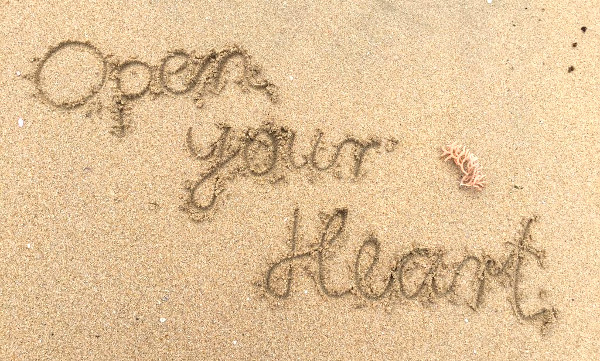 Open
your
Heart